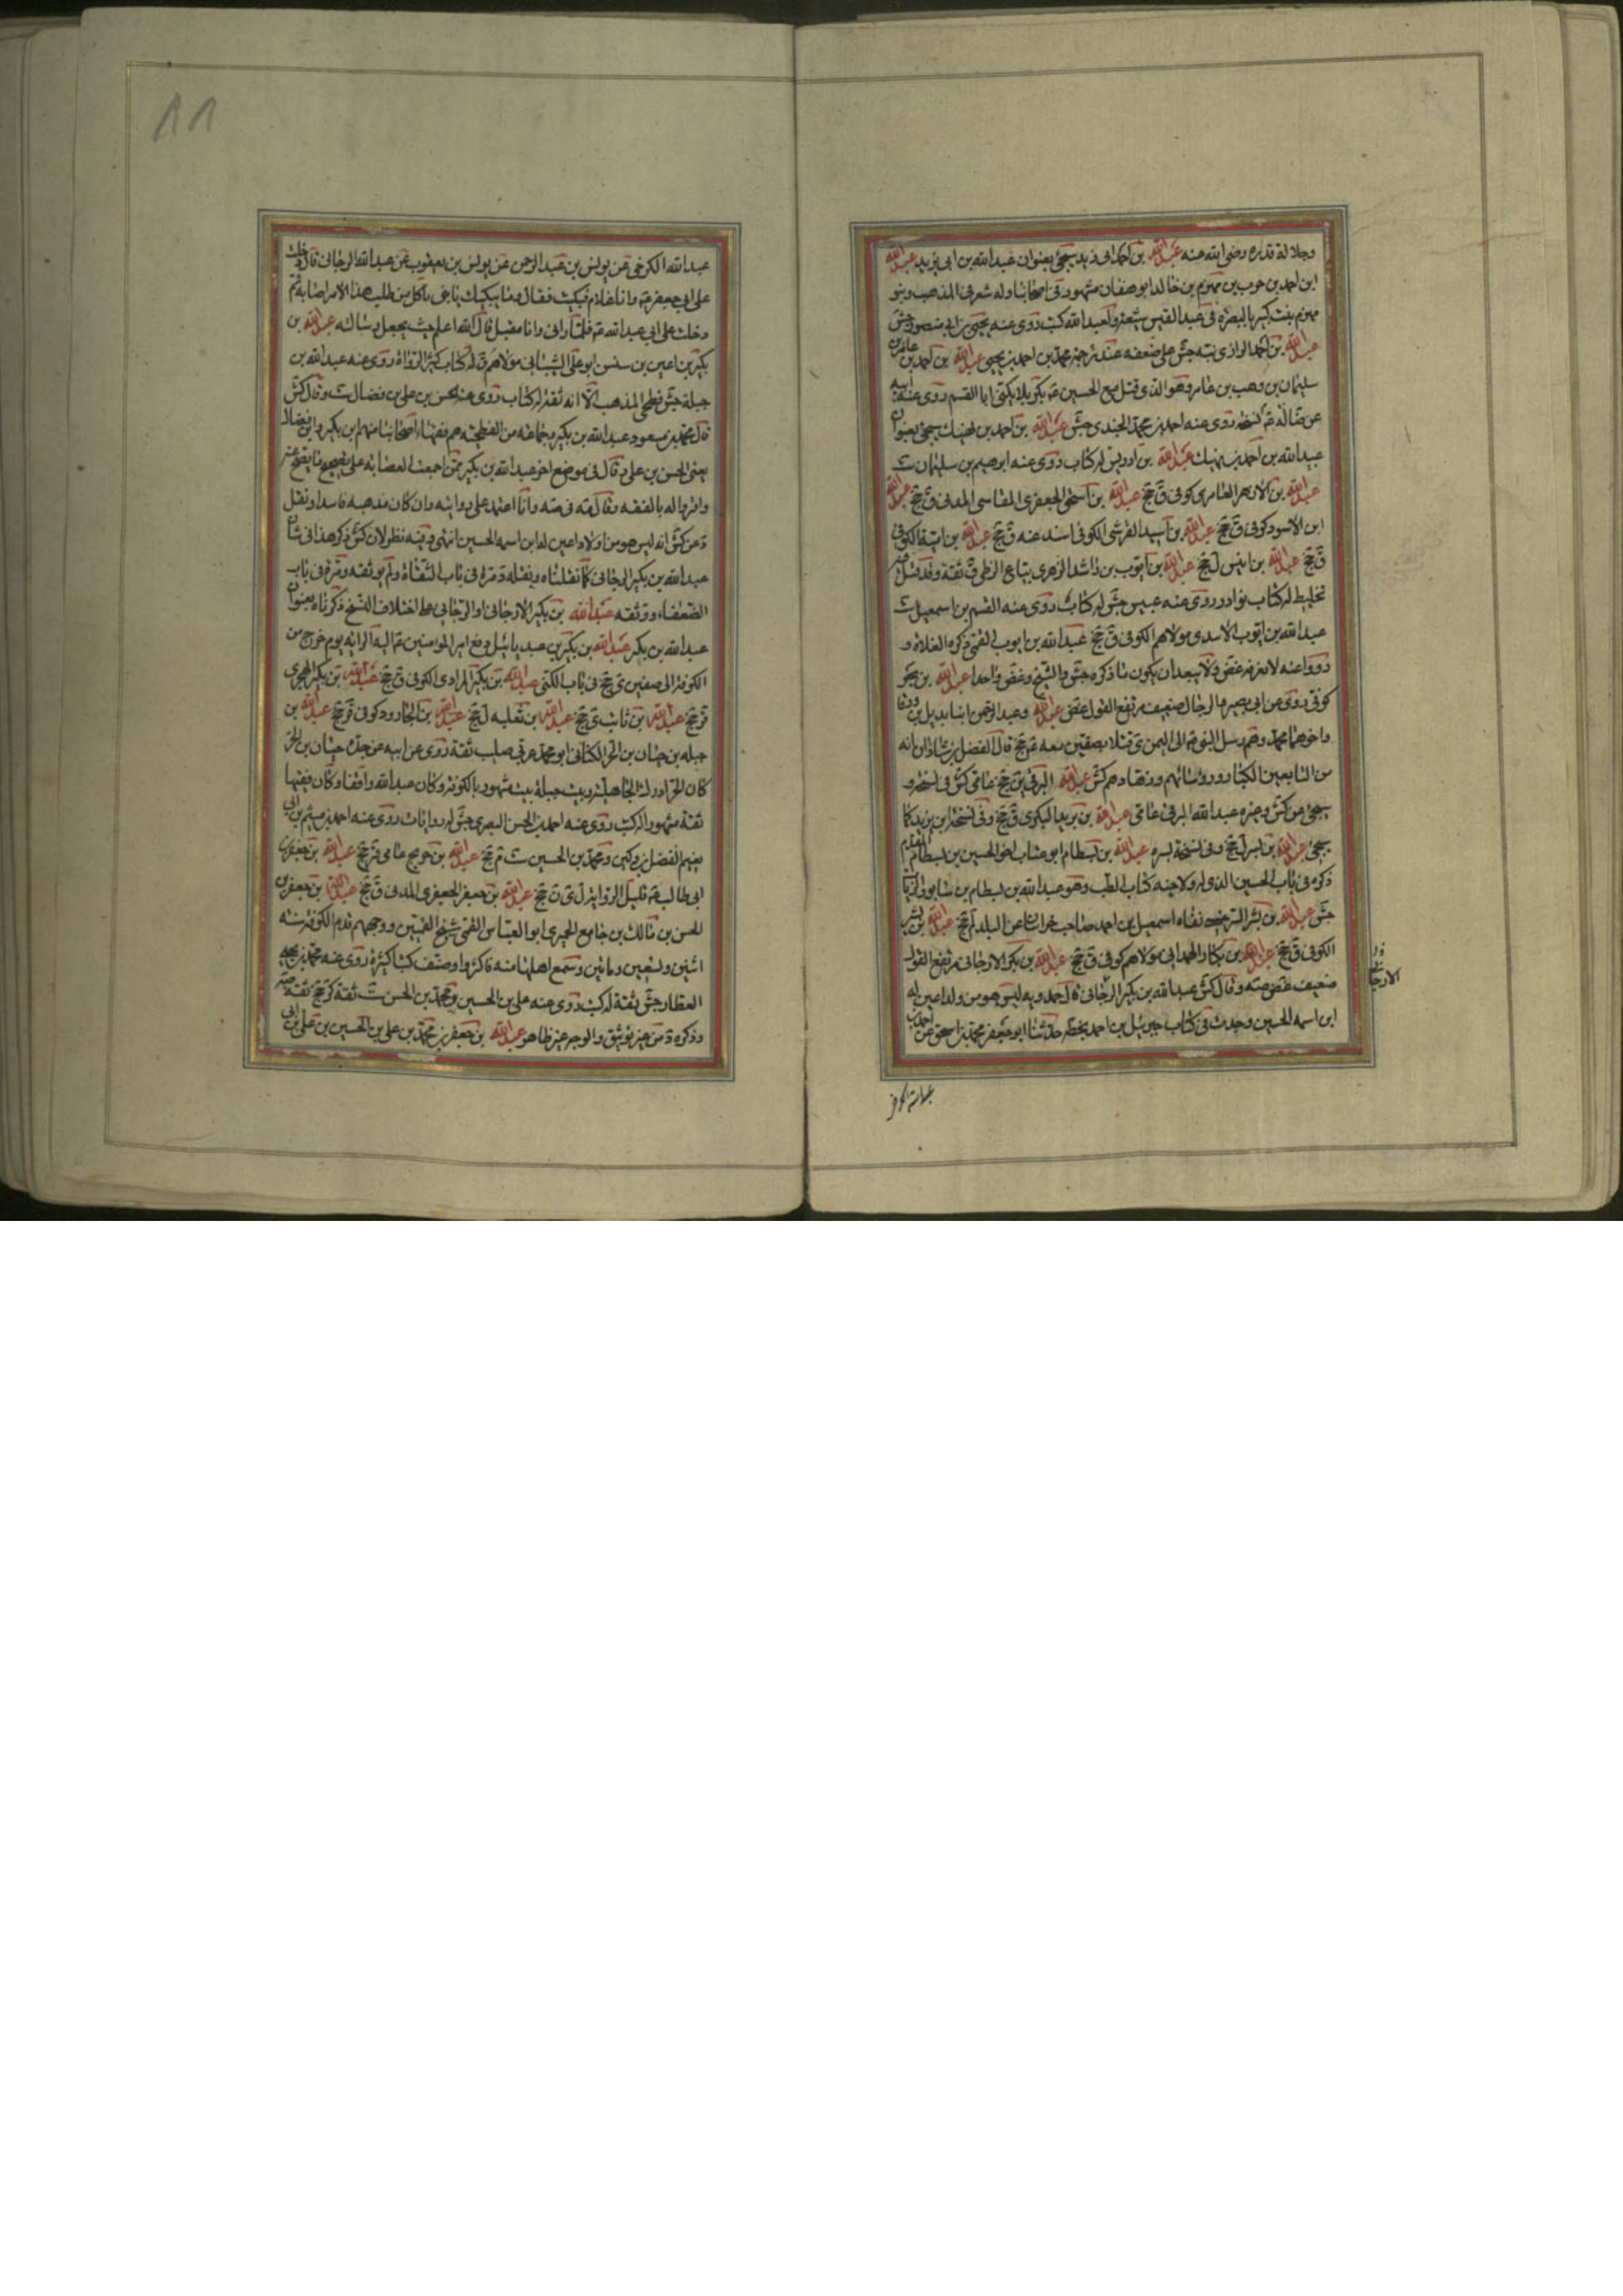 وجلالة قدره رضى الله عنه عبدالله بن احمد ابى زيد يجئ بعنوان عبدالله بن ابى زيد عبدالله
ابن احمد بن حرب بن مهزم بن خالد ابوهفان مشهور فى اصحابنا وله شعر فى المذهب وبنو
مهزم بيت كبير بالبصرة فى عبد القيس شعر ولعبد الله كتب روى عنه يحيى بن ابى منصور جش
عبدالله بن احمد الرازى نبه جش على ضعفه عند ترجمة محمد بن احمد بن يحيى عبدالله بن احمد بن عامر بن
سليمان بن وهب بن عامر وهو الذى قتل مع الحسين ع بكربلا يكنى ابا القسم روى عنه ابيه
عن ضا له نسخة روى عنه احمد بن محمد الجندى جش عبدالله بن احمد بن نهيك يجئ بعنوان
عبيد الله بن احمد بن نهيك عبدالله بن ادريس له كتاب روى عنه ابرهيم بن سليمان ست
عبدالله بن الازهر العامرى كوفى ق جخ عبدالله بن اسحق الجعفرى الهاشمى المدنى ق جخ عبدالله
ابن الاسود كوفى ق جخ عبدالله بن اسيد القرشى الكوفى اسند عنه ق جخ عبدالله بن امية الكوفى
ق جخ عبدالله بن انيس ل جخ عبدالله بن ايوب بن راشد الزهرى بياع الزطى ق ثقة وقد قيل فيه
تخليط له كتاب نوادر روى عنه عبيس جش له كتاب روى عنه القسم بن اسمعيل ست
عبدالله بن ايوب الاسدى مولاهم الكوفى ق جخ عبدالله بن ايوب القمى ذكره الغلاة و
رووا عنه لا نعرفه غض ولا يبعد ان يكون ما ذكره جش والشيخ وغض واحدا عبدالله بن بحر
كوفى روى عن ابى بصير والرجال ضعيف مرتفع القول غض عبدالله وعبد الرحمن ابنا بديل بن ورقا
واخوهما محمد وهم رسل النبى ص الى اليمن ى قتلا بصفين معه ع جخ قال الفضل بن شاذان انه
من التابعين الكبار ورؤسائهم وزهادهم كش عبدالله البرقى ين جخ عامى كش فى نسخة و
يجئ عن كش وغيره عبدالله البرقى عامى عبدالله بن بريد البكرى ق جخ وفى نسخة ابن يزيد كما
يجئ عبدالله بن بسر ل جخ وفى نسخة بسره عبدالله بن بسطام ابو عتاب اخو الحسين بن بسطام المقدم
ذكره فى باب الحسين الذى له ولاخيه كتاب الطب وهو عبدالله بن بسطام بن سابور الزيات
جش عبدالله بن بشر السرخسى نفاه اسمعيل بن احمد صاحب خراسان عن البلد لم جخ عبدالله بن بشير
الكوفى ق جخ عبدالله بن بكار الهمدانى مولاهم كوفى ق جخ عبدالله بن بكر الارجانى مرتفع القول
ضعيف غض صه وقال كش عبدالله بن بكير الرجانى قال حمدويه ليس هو من ولد اعين له
ابن اسمه الحسين وجدت فى كتاب جبرئيل بن احمد بخطه حدثنا ابو جعفر محمد بن اسحق عن احمد بن
عبدالله الكرخى
عبدالله الكرخى عن يونس بن عبد الرحمن عن يونس بن يعقوب عن عبدالله الرجانى قال دخلت
على ابى جعفر ع وانا غلام فبكيت فقال ما يبكيك يا بنى ما كل من طلب هذا الامر اصابه ثم
دخلت على ابى عبدالله ع فلما رانى وانا مقبل قال الله اعلم حيث يجعل رسالته عبدالله بن
بكير بن اعين بن سنسن ابو على الشيبانى مولاهم ق له كتاب كثير الرواة روى عنه عبدالله بن
جبلة جش فطحى المذهب الا انه ثقة له كتاب روى عنه الحسن بن على بن فضال ست وقال كش
قال محمد بن مسعود عبدالله بن بكير وجماعة من الفطحية هم فقهاء اصحابنا منهم ابن بكير وابن فضال
يعنى الحسن بن على وقال فى موضع اخر عبدالله بن بكير ممن اجمعت العصابة على تصحيح ما يصح عنه
واقروا له بالفقه وقال مة فى صه وانا اعتمد على روايته وان كان مذهبه فاسدا ونقل
د عن كش انه ليس هو من اولاد اعين له ابن اسمه الحسين انتهى وفيه نظر لان كش ذكر هذا فى شان
عبدالله بن بكير الرجانى كما نقلناه ونقله د مرة فى باب الثقاة ولم يوثقه ومرة فى باب
الضعفاء ووثقه عبدالله بن بكير الارجانى او الرجانى على اختلاف النسخ ذكرناه بعنوان
عبدالله بن بكر عبدالله بن بكير بن عبد ياليل دفع امير المؤمنين ع اليه الراية يوم خرج من
الكوفة الى صفين ى جخ فى باب الكنى عبدالله بن بكير المرادى الكوفى ق جخ عبدالله بن بكير الهجرى
قر جخ عبدالله بن ثابت ى جخ عبدالله بن ثعلبه ل جخ عبدالله بن الجارود كوفى قر جخ عبدالله بن
جبله بن حيان بن الحر الكنانى ابو محمد عربى صليب ثقة روى عن ابيه عن جده حيان بن الحر
كان الحر ادرك الجاهلية وبيت جبلة بيت مشهور بالكوفة وكان عبدالله واقفا وكان فقيها
ثقة مشهورا له كتب روى عنه احمد بن الحسن البصرى جش له روايات روى عنه احمد بن ميثم بن ابى
نعيم الفضل بن دكين ومحمد بن الحسين ست م جخ عبدالله بن جريح عامى قر جخ عبدالله بن جعفر بن
ابى طالب ع قليل الرواية ل ى ن جخ عبدالله بن جعفر الجعفرى المدنى ق جخ عبدالله بن جعفر بن
الحسن بن مالك بن جامع الحميرى ابو العباس القمى شيخ القميين ووجههم قدم الكوفة سنه
اثنين وتسعين ومائين وسمع اهلها منه فاكثروا وصنف كتبا كثيرة روى عنه محمد بن يحيى
العطار جش ثقة له كتب روى عنه على بن الحسين ومحمد بن الحسن ست ثقة كر جخ ثقة صه
وذكره د من غير توثيق والوجه غير ظاهر عبدالله بن جعفر بن محمد بن على بن الحسين بن على بن ابى